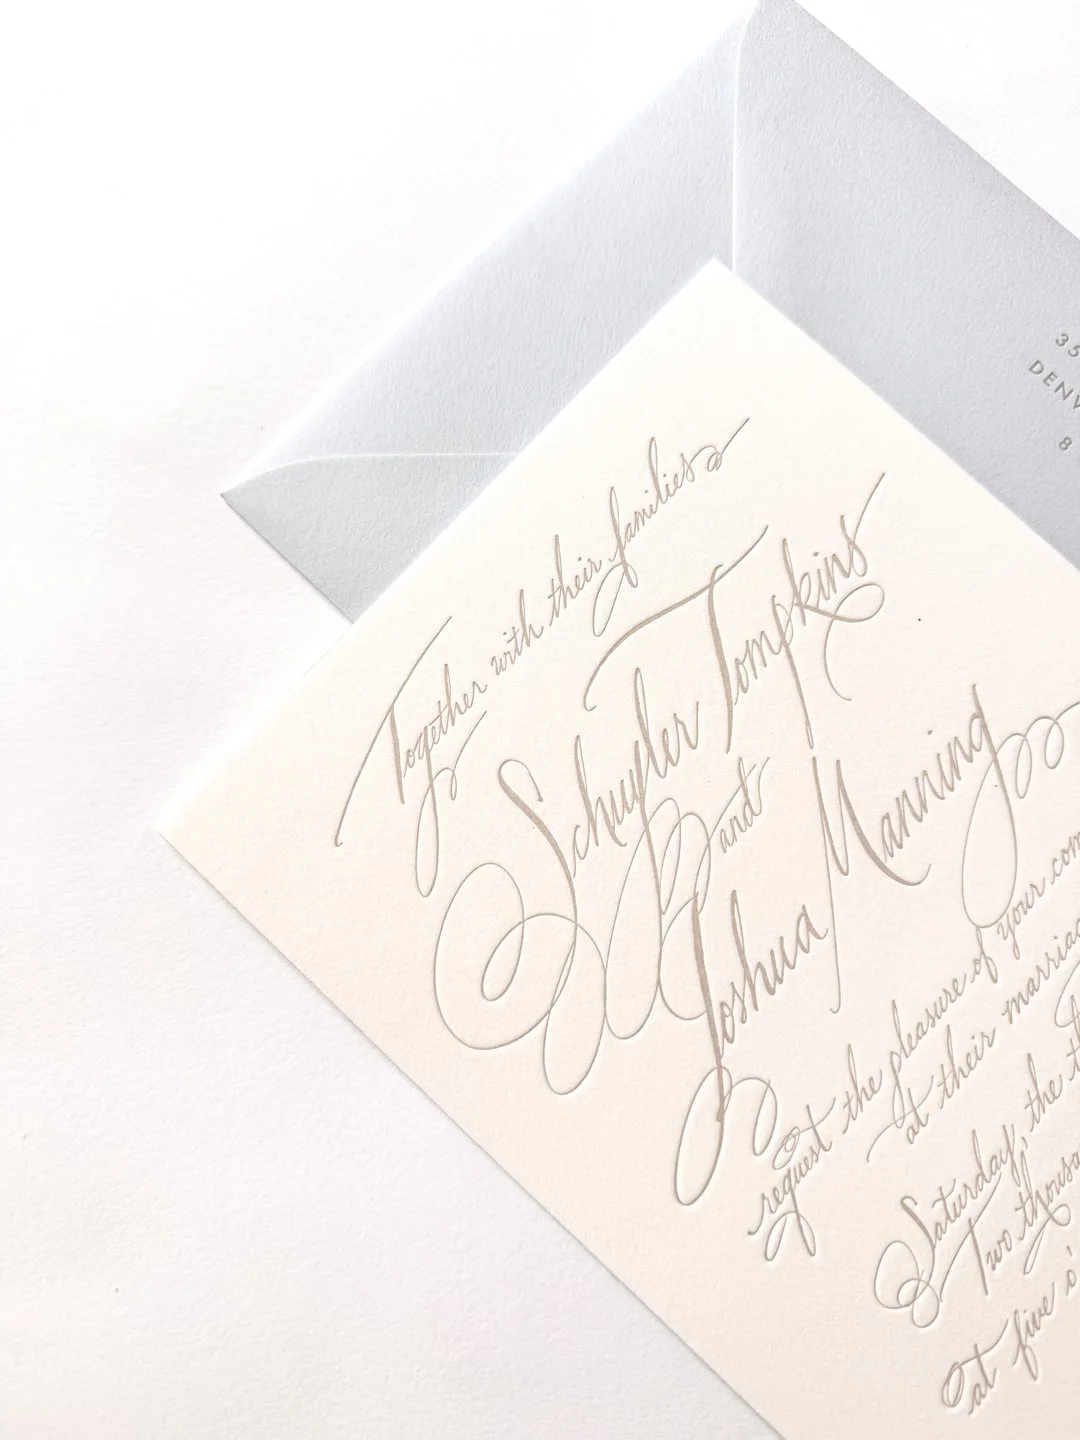 35
DENV
8
Together with their families
Schuyler Tompkins
and
Joshua Manning
request the pleasure of your com
at their marriag
Saturday, the t
Two thousa
at five o'